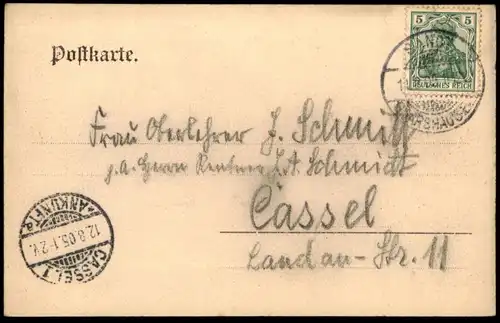 Postkarte.
5 5
DEUTSCHES REICH
Frau Oberlehrer J. Schmitt
p. a. Herrn Rentner J. A. Schmidt
Cassel
Landau-Str. 11
CASSEL 1
*ANKUNFT*
12.8.05.1-2 N.